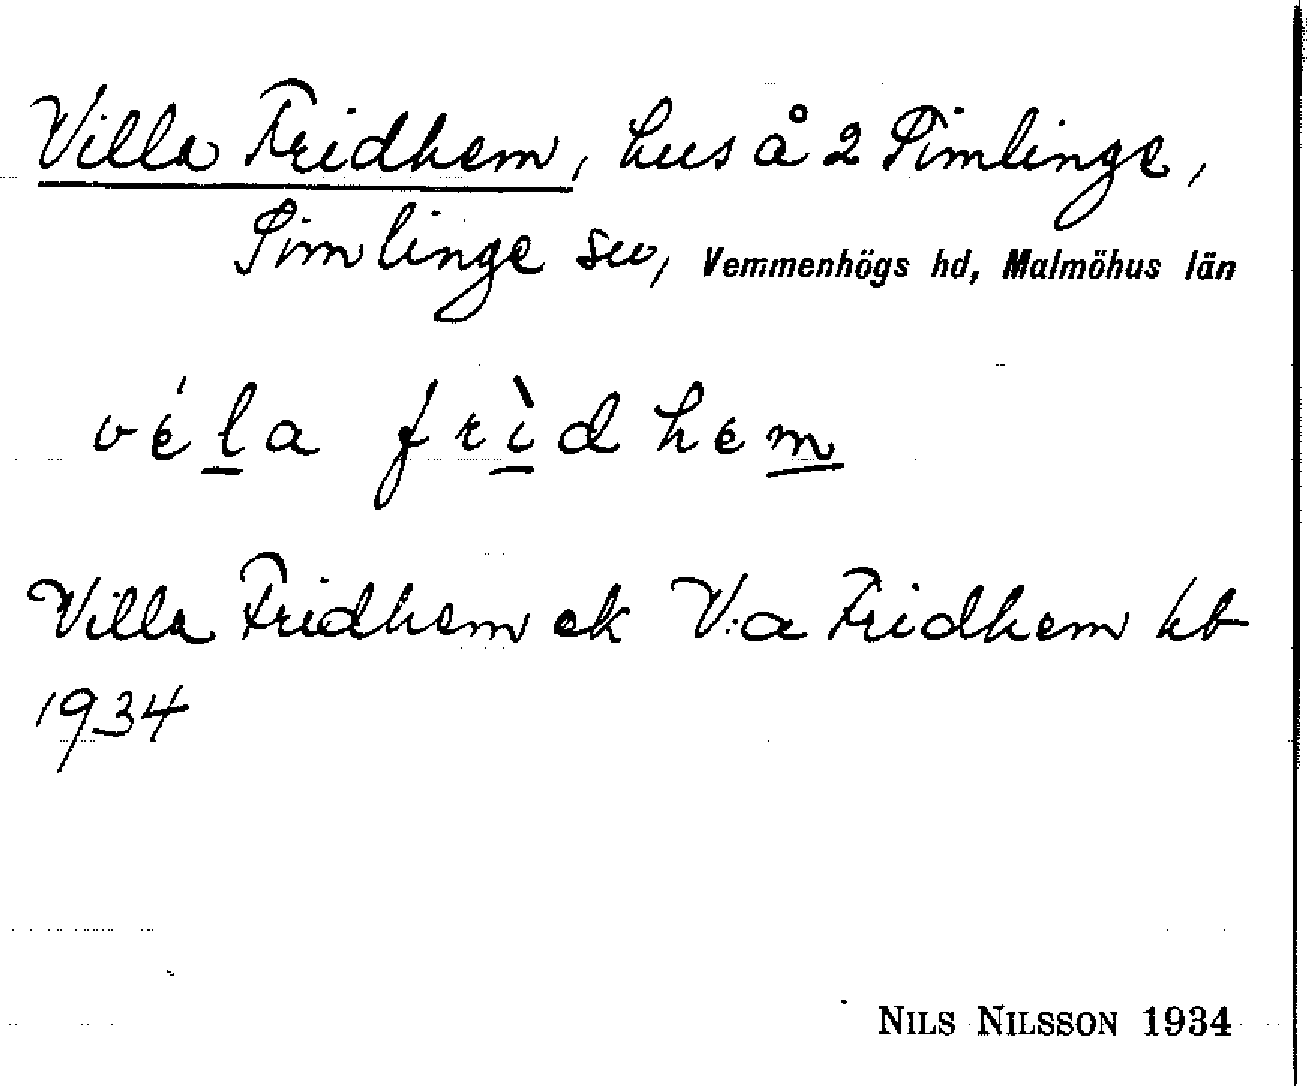 Villa Fridhem, hus å 2 Simlinge,
Simlinge sn, Vemmenhögs hd, Malmöhus län
véla frìdhem
Villa Fridhem ek V:a Fridhem kb
1934
NILS NILSSON 1934